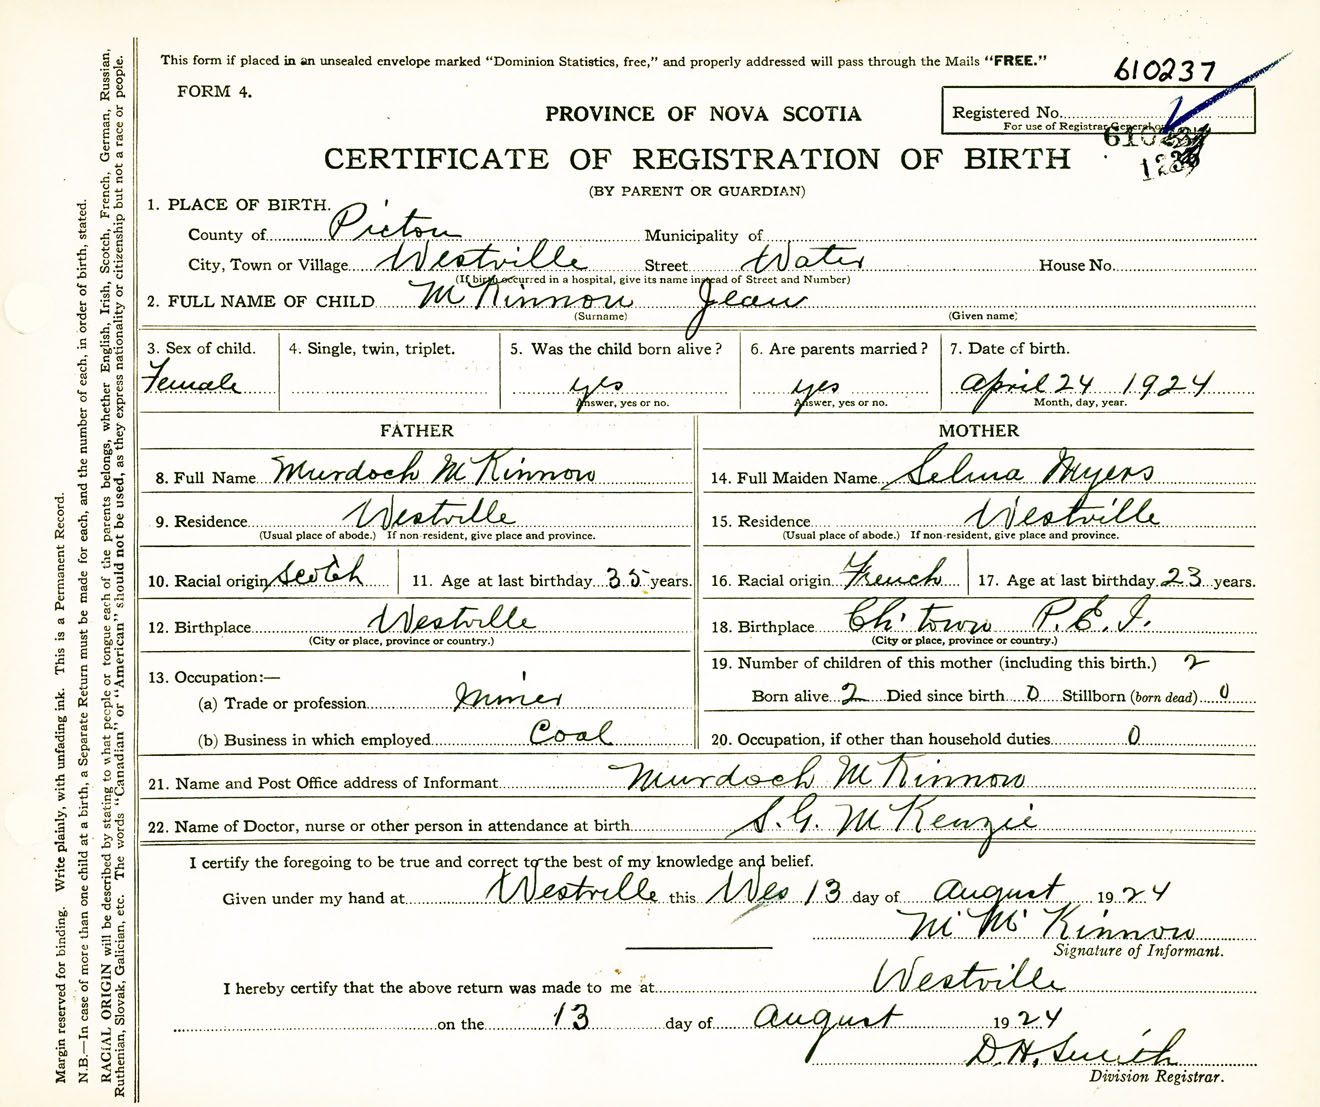 This form if placed in an unsealed envelope marked “Dominion Statistics, free,” and properly addressed will pass through the Mails “FREE.”
610237
FORM 4.
PROVINCE OF NOVA SCOTIA
Registered No.
For use of Registrar General
CERTIFICATE OF REGISTRATION OF BIRTH
(BY PARENT OR GUARDIAN)
1. PLACE OF BIRTH.
County of Pictou Municipality of
City, Town or Village Westville Street Water House No.
(If birth occurred in a hospital, give its name instead of Street and Number)
2. FULL NAME OF CHILD McKinnon Jean
(Surname) (Given name)
3. Sex of child. 4. Single, twin, triplet. 5. Was the child born alive? 6. Are parents married? 7. Date of birth.
Female yes yes April 24 1924
Answer, yes or no. Answer, yes or no. Month, day, year.
FATHER MOTHER
8. Full Name Murdoch McKinnon 14. Full Maiden Name Selma Myers
9. Residence Westville 15. Residence Westville
(Usual place of abode.) If non-resident, give place and province. (Usual place of abode.) If non-resident, give place and province.
10. Racial origin Scotch 11. Age at last birthday 35 years. 16. Racial origin French 17. Age at last birthday 23 years.
12. Birthplace Westville 18. Birthplace Ch'town P.E.I.
(City or place, province or country.) (City or place, province or country.)
13. Occupation:— 19. Number of children of this mother (including this birth.) 2
(a) Trade or profession Miner Born alive 2 Died since birth 0 Stillborn (born dead) 0
(b) Business in which employed Coal 20. Occupation, if other than household duties 0
21. Name and Post Office address of Informant Murdoch McKinnon
22. Name of Doctor, nurse or other person in attendance at birth S.G. McKenzie
I certify the foregoing to be true and correct to the best of my knowledge and belief.
Given under my hand at Westville this Wes 13 day of August 1924
M McKinnon
Signature of Informant.
I hereby certify that the above return was made to me at Westville
on the 13 day of August 1924
D.H. Smith
Division Registrar.
Margin reserved for binding. Write plainly, with unfading ink. This is a Permanent Record.
N.B.—In case of more than one child at a birth, a Separate Return must be made for each, and the number of each, in order of birth, stated.
RACIAL ORIGIN will be described by stating to what people or tongue each of the parents belongs, whether English, Irish, Scotch, French, German, Russian,
Ruthenian, Slovak, Galician, etc. The words “Canadian” or “American” should not be used, as they express nationality or citizenship but not a race or people.